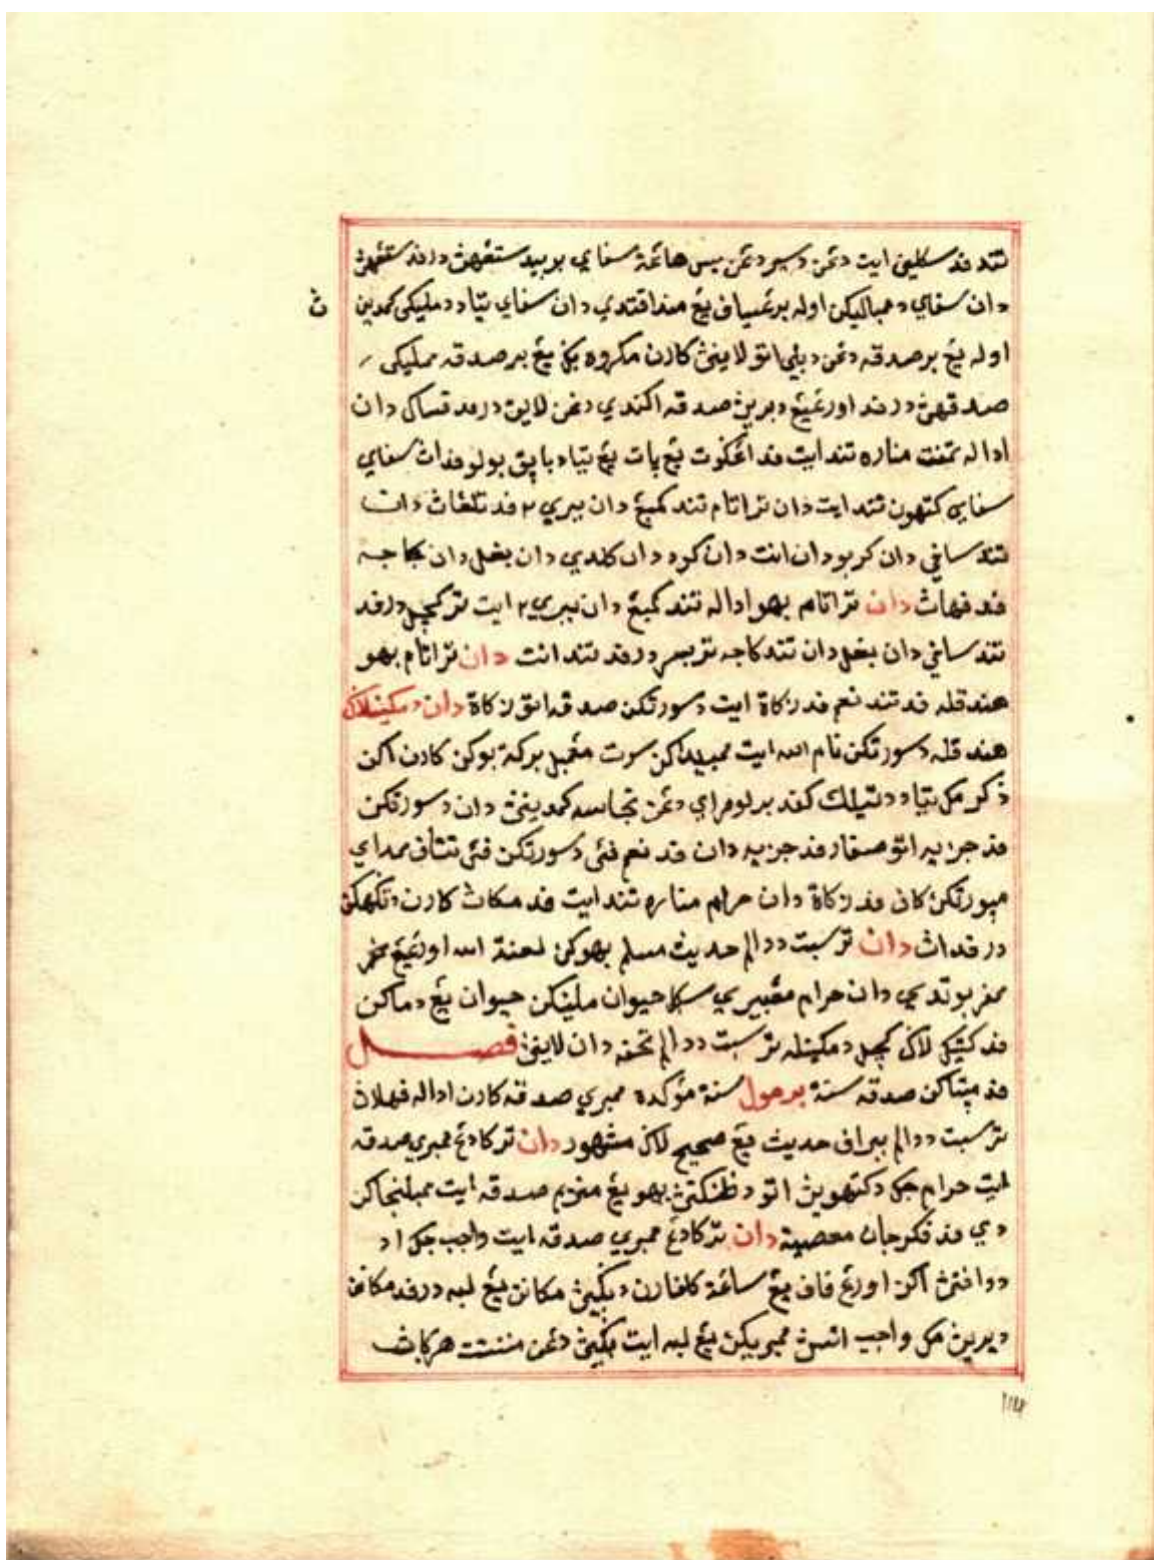 تند فد سكلين ايت دغن دسير دغن بيس هاغة سفاي بربيد ستغهن درفد ستغهن
دان سفاي دمباليكن اوله برغسياف يغ منداڤتدي دان سفاي تياد دمليكي كمدين
ث
اوله يغ برصدقه دغن دبلي اتو لاينث كارن مكروه بڬي يغ برصدقه ممليكي
صدقهن درفد اورغيغ دبرين صدقه اكندي دغن لاين درفد فساك دان
اداله تمفت مناره تند ايت فد اڠݢوت يغ يات يغ تياد باپق بولو فداث سفاي
سفاي كتهون تند ايت دان تراتام تند كمبيغ دان بيري٢ فد تلڠاث دان
تند سافي دان كربو دان انت دان كود دان كلدي دان بغل دان كاجه
فد فهاث دان تراتام بهوا اداله تند كمبيغ دان بيري٢ ايت تركچل درفد
تند سافي دان بغل دان تند كاجه تربسر درفد تند انت دان تراتام بهو
هندقله فد تند نعم فد زكاة ايت دسورتكن صدقه اتو زكاة دان دمكينلاݢ
هندقله دسورتكن نام الله ايت ممبيداكن سوت مڠمبل بركة بوكن كارن اكن
ذكر مك تياد دتيلك كفد برلومراي دغن نجاسه كمدينث دان دسورتكن
فد جزيه اتو صغار فد جزيه دان فد نعم فئ دسورتكن فئ تتاف ممداي
مپورتكن كاف فد زكاة دان حرام مناره تند ايت فد مكاث كارن دتݢهكن
درفداث دان ترسبت ددالم حديث مسلم بهوكن لعنة الله اورغيغ ممفر
ممفربوتدي دان حرام مڠبيري سݢل حيوان ملينكن حيوان يغ دماكن
فد كتيك لاݢ كچل دمكينله ترسبت ددالم تحفه دان لاينث فصل
فد مپتاكن صدقه سنة برمول سنة مؤكده ممبري صدقه كارن اداله فهلاث
ترسبت ددالم ببراف حديث يغ صحيح لاݢ مشهور دان تركادغ ممبري صدقه
ايت حرام جك دكتهوين اتو دظنكنث بهو يغ منريم صدقه ايت ممبلنجاكن
دي فد فكرجان معصية دان تركادغ ممبري صدقه ايت واجب جك اد
ددافتث اكن اورغ فاف يغ ساغة كلفارن دبݢيث مكانن يغ لبه درفد مكانن
ديرين مك واجب اتسث ممبريكن يغ لبه ايت بݢيث دغن منتت هرݢاث